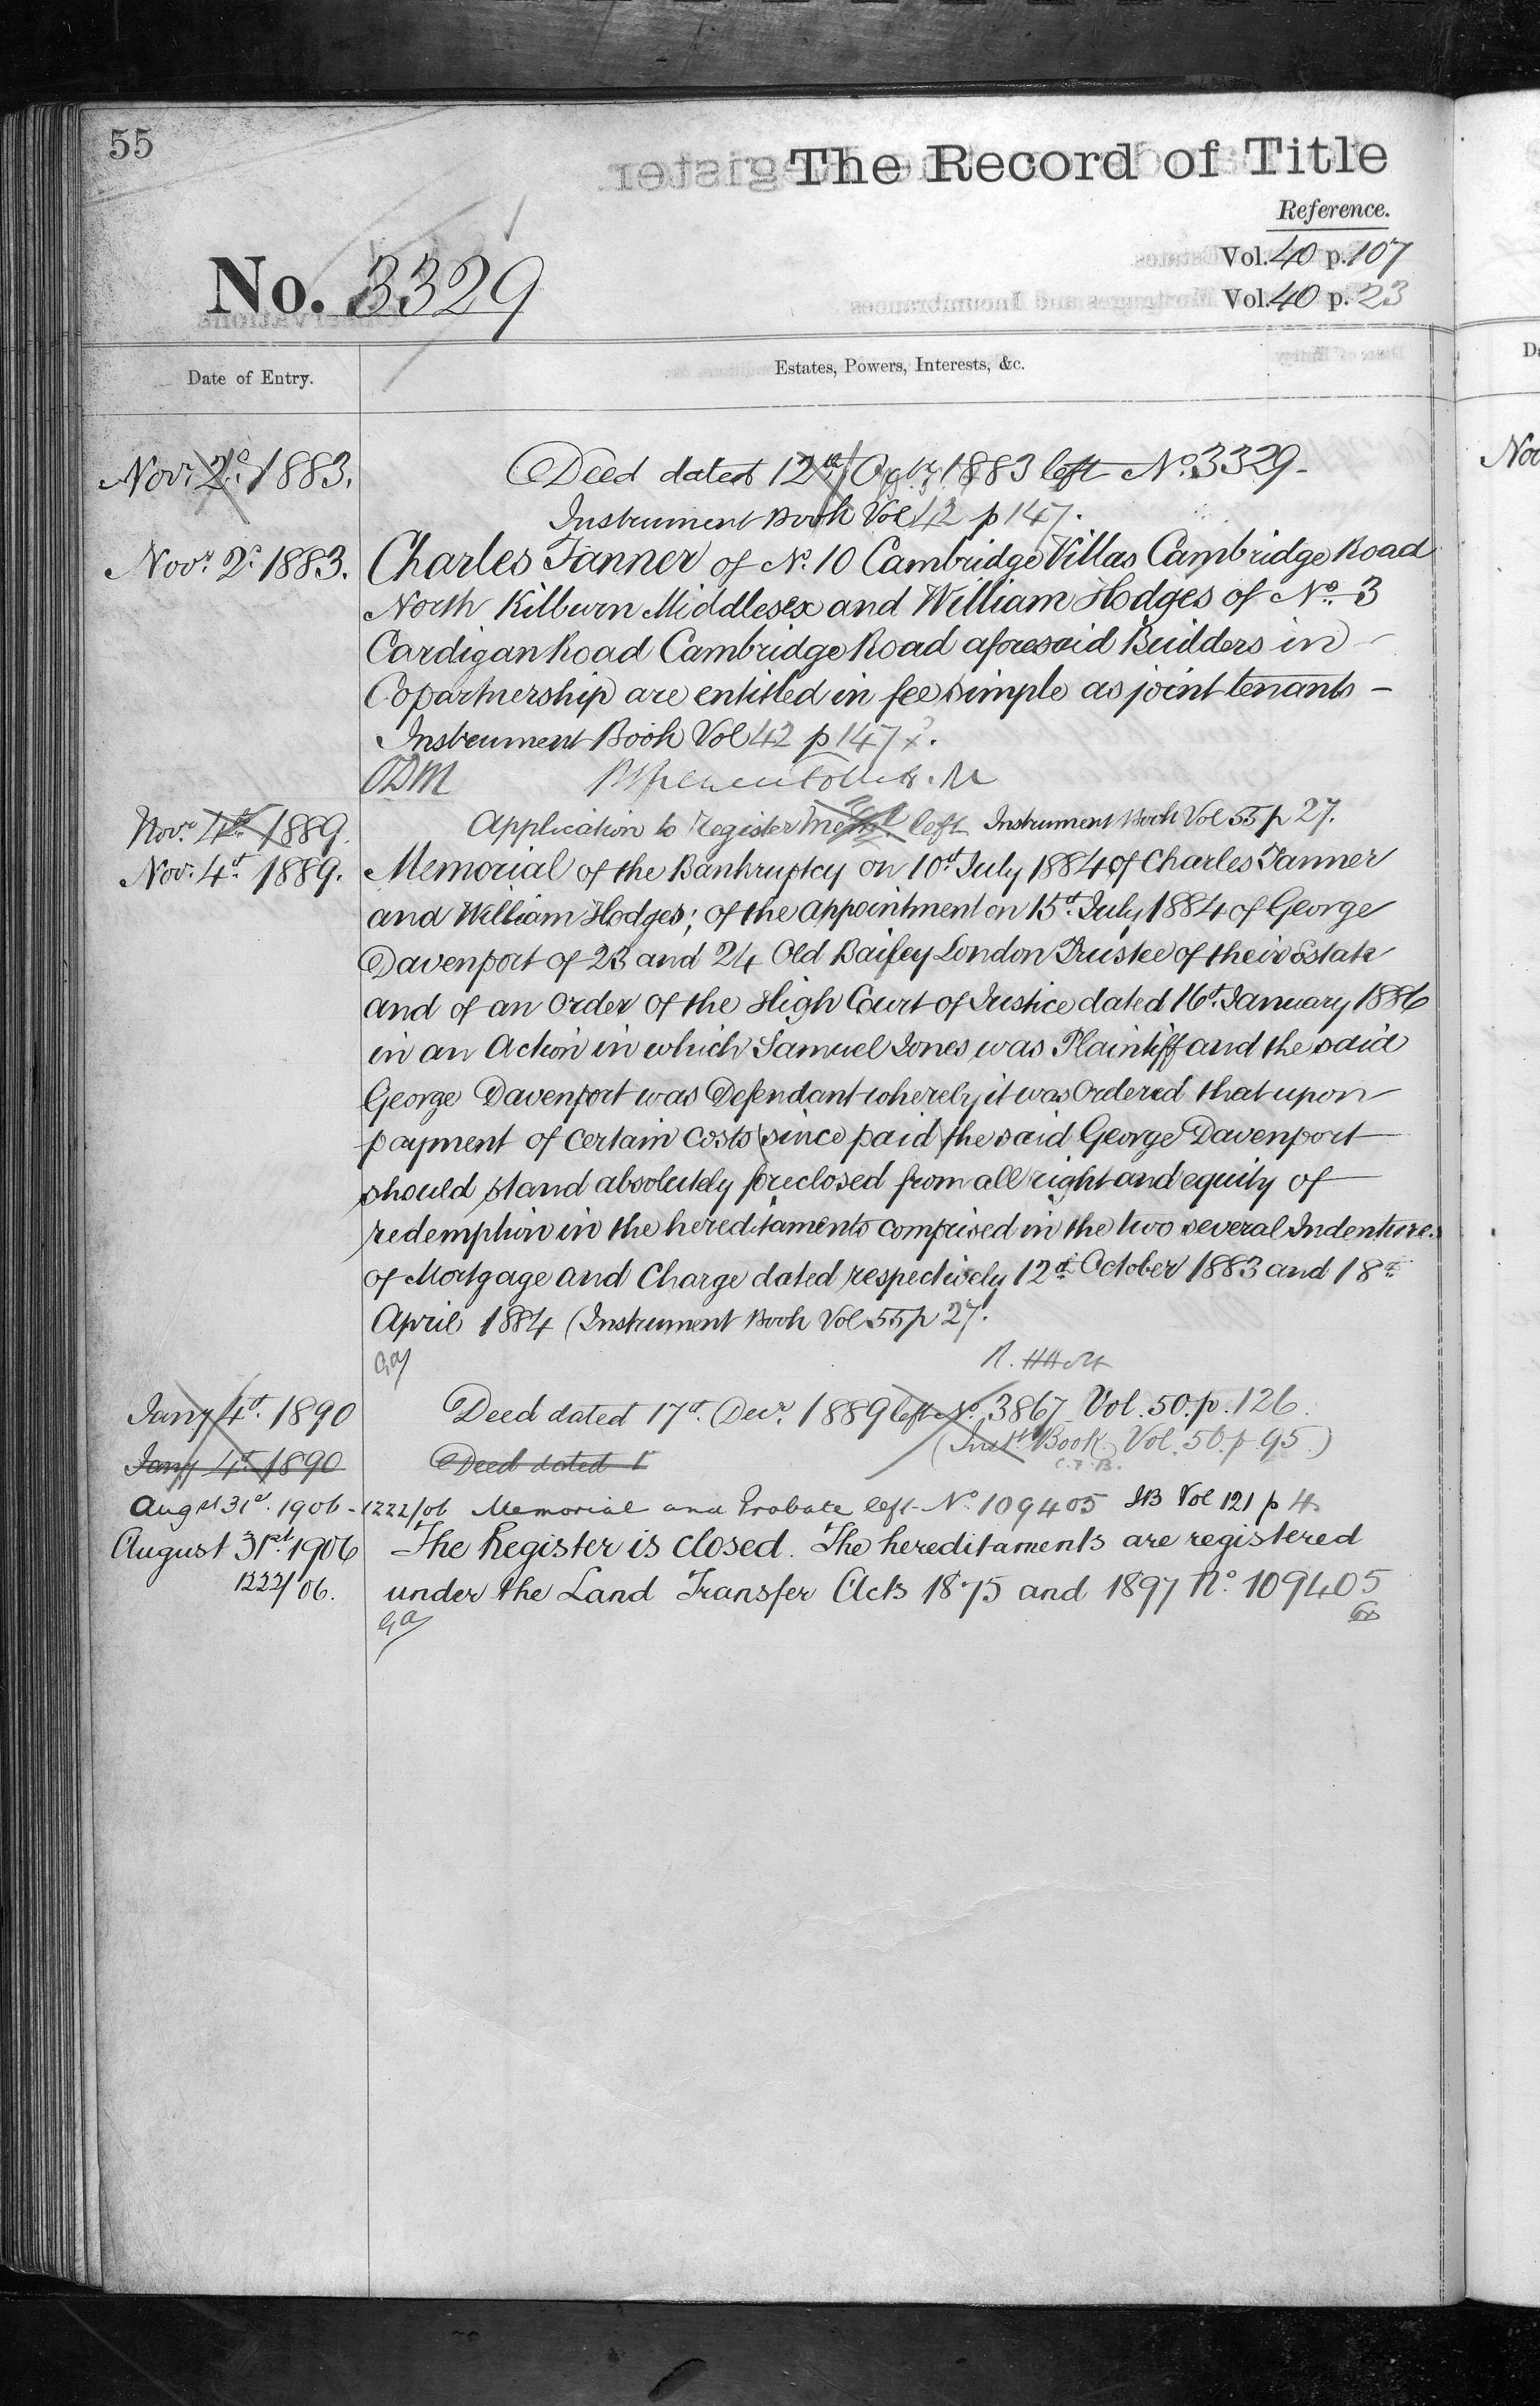 55
The Record of Title
Reference.
Vol. 40 p. 107
Vol. 40 p. 23
No. 3329
Date of Entry.
Estates, Powers, Interests, &c.
Novr. 2d. 1883. Deed dated 12th Octr. 1883 left No. 3329 -
Instrument Book Vol 42 p 147.
Novr. 2d. 1883. Charles Tanner of No. 10 Cambridge Villas Cambridge Road
North Kilburn Middlesex and William Hodges of No. 3
Cardigan Road Cambridge Road aforesaid Builders in
Copartnership are entitled in fee simple as joint tenants -
Instrument Book Vol 42 p 147.
Novr. 4th 1889. Application to Register left Instrument Book Vol 55 p 27.
Novr. 4th 1889. Memorial of the Bankruptcy on 10th July 1884 of Charles Tanner
and William Hodges; of the appointment on 15th July 1884 of George
Davenport of 23 and 24 Old Bailey London Trustee of their Estate
and of an Order of the High Court of Justice dated 16th January 1886
in an Action in which Samuel Jones was Plaintiff and the said
George Davenport was Defendant whereby it was Ordered that upon
payment of certain costs (since paid) the said George Davenport
should stand absolutely foreclosed from all right and equity of
redemption in the hereditaments comprised in the two several Indentures
of Mortgage and Charge dated respectively 12th October 1883 and 18th
April 1884 (Instrument Book Vol 55 p 27.
Jany 4th. 1890 Deed dated 17th. Decr. 1889 left No. 3867 Vol. 50. p. 126.
(Inst. Book Vol. 50. p. 95.)
C.F.B.
Jany 4th 1890 Deed dated 1
Augst 31st. 1906 - 1222/06 Memorial and Probate left No. 109405 IB Vol 121 p 4
August 31st. 1906 The Register is closed. The hereditaments are registered
1222/06. under the Land Transfer Acts 1875 and 1897 No. 109405